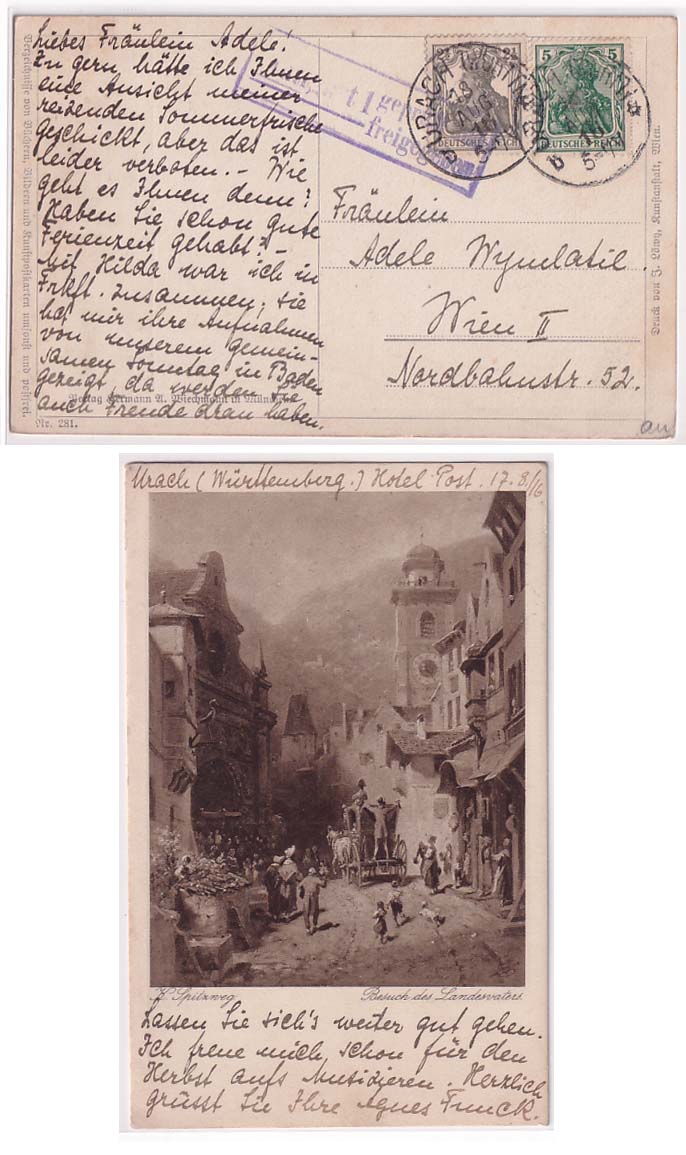 Liebes Fräulein Adele!
Zu gern hätte ich Ihnen
eine Ansicht meiner
reizenden Sommerfrische
geschickt, aber das ist
leider verboten. - Wie
geht es Ihnen denn?
Haben Sie schon gute
Ferienzeit gehabt? -
Mit Hilda war ich in
Frkft. zusammen; sie
hat mir ihre Aufnahmen
von unserem gemein-
samen Sonntag in Baden
gezeigt, da werden Sie
auch Freude dran haben.
Verlag Hermann A. Wiechmann in München
Nr. 281.
Vergeßt nicht von Bildern und Kunstpostkarten umsonst und postfrei.
1 gep
freigegeben
URACH (WÜRTT)
18 AUG
16
5-
2½ 2½
DEUTSCHES REICH
5 5
DEUTSCHES REICH
Fräulein
Adele Wymlatil.
Wien II
Nordbahnstr. 52.
Druck von J. Löwy, Kunstanstalt, Wien.
au
Urach (Württemberg.) Hotel Post. 17.8/16
K. Spitzweg
Besuch des Landesvaters
Lassen Sie sich's weiter gut gehen.
Ich freue mich schon für den
Herbst aufs Musizieren. Herzlich
grüsst Sie Ihre Agnes Funck.